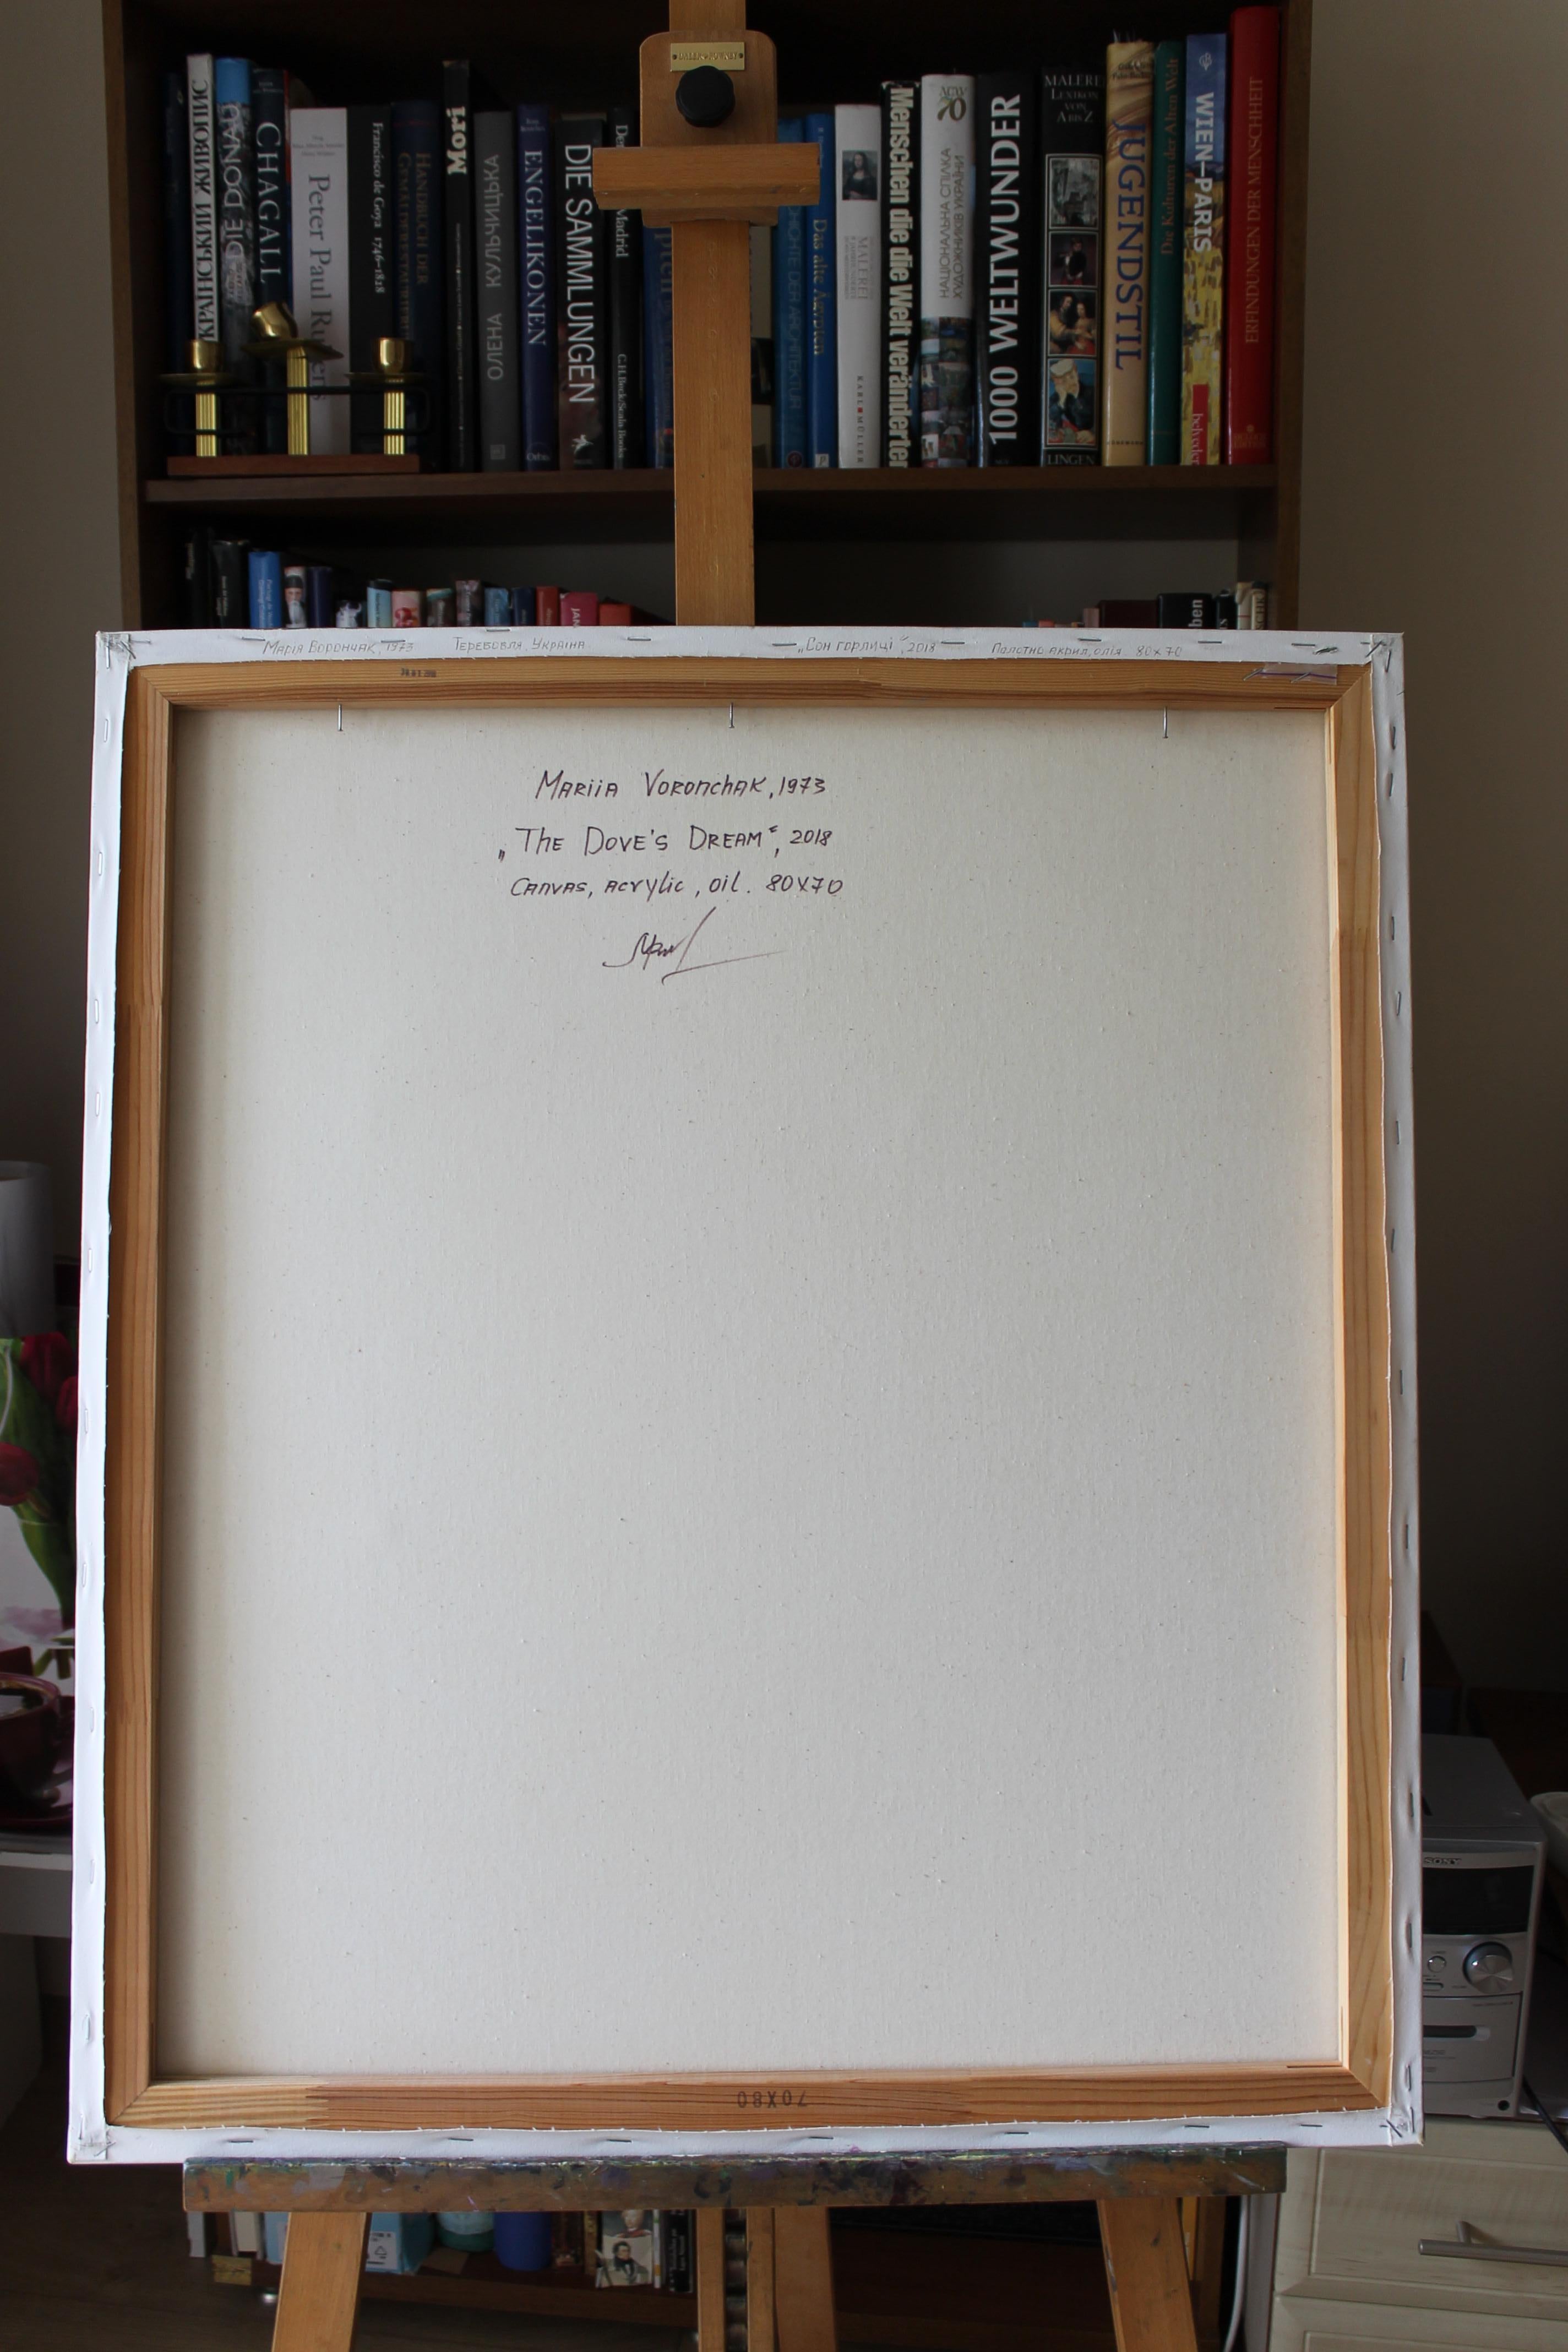 УКРАЇНСЬКИЙ ЖИВОПИС
DIE DONAU
CHAGALL
Peter Paul Rubens
Francisco de Goya 1746–1828
HANDBUCH DER
Mori
ОЛЕНА КУЛЬЧИЦЬКА
ENGELIKONEN
DIE SAMMLUNGEN
Madrid
C.H.Beck/Scala Books
Das alte Ägypten
MALEREI
KARL MÜLLER
Menschen die die Welt veränderten
70
НАЦІОНАЛЬНА СПІЛКА
ХУДОЖНИКІВ УКРАЇНИ
1000 WELTWUNDER
MALEREI
LEXIKON
VON
A BIS Z
LINGEN
JUGENDSTIL
Die Kulturen der Alten Welt
WIEN–PARIS
ERFINDUNGEN DER MENSCHHEIT
ben
Марія Ворончак, 1973 Теребовля, Україна „Сон горлиці“, 2018 Полотно, акрил, олія. 80х70
Mariia Voronchak, 1973
„The Dove's Dream“, 2018
Canvas, acrylic, oil. 80x70
70X80
SONY